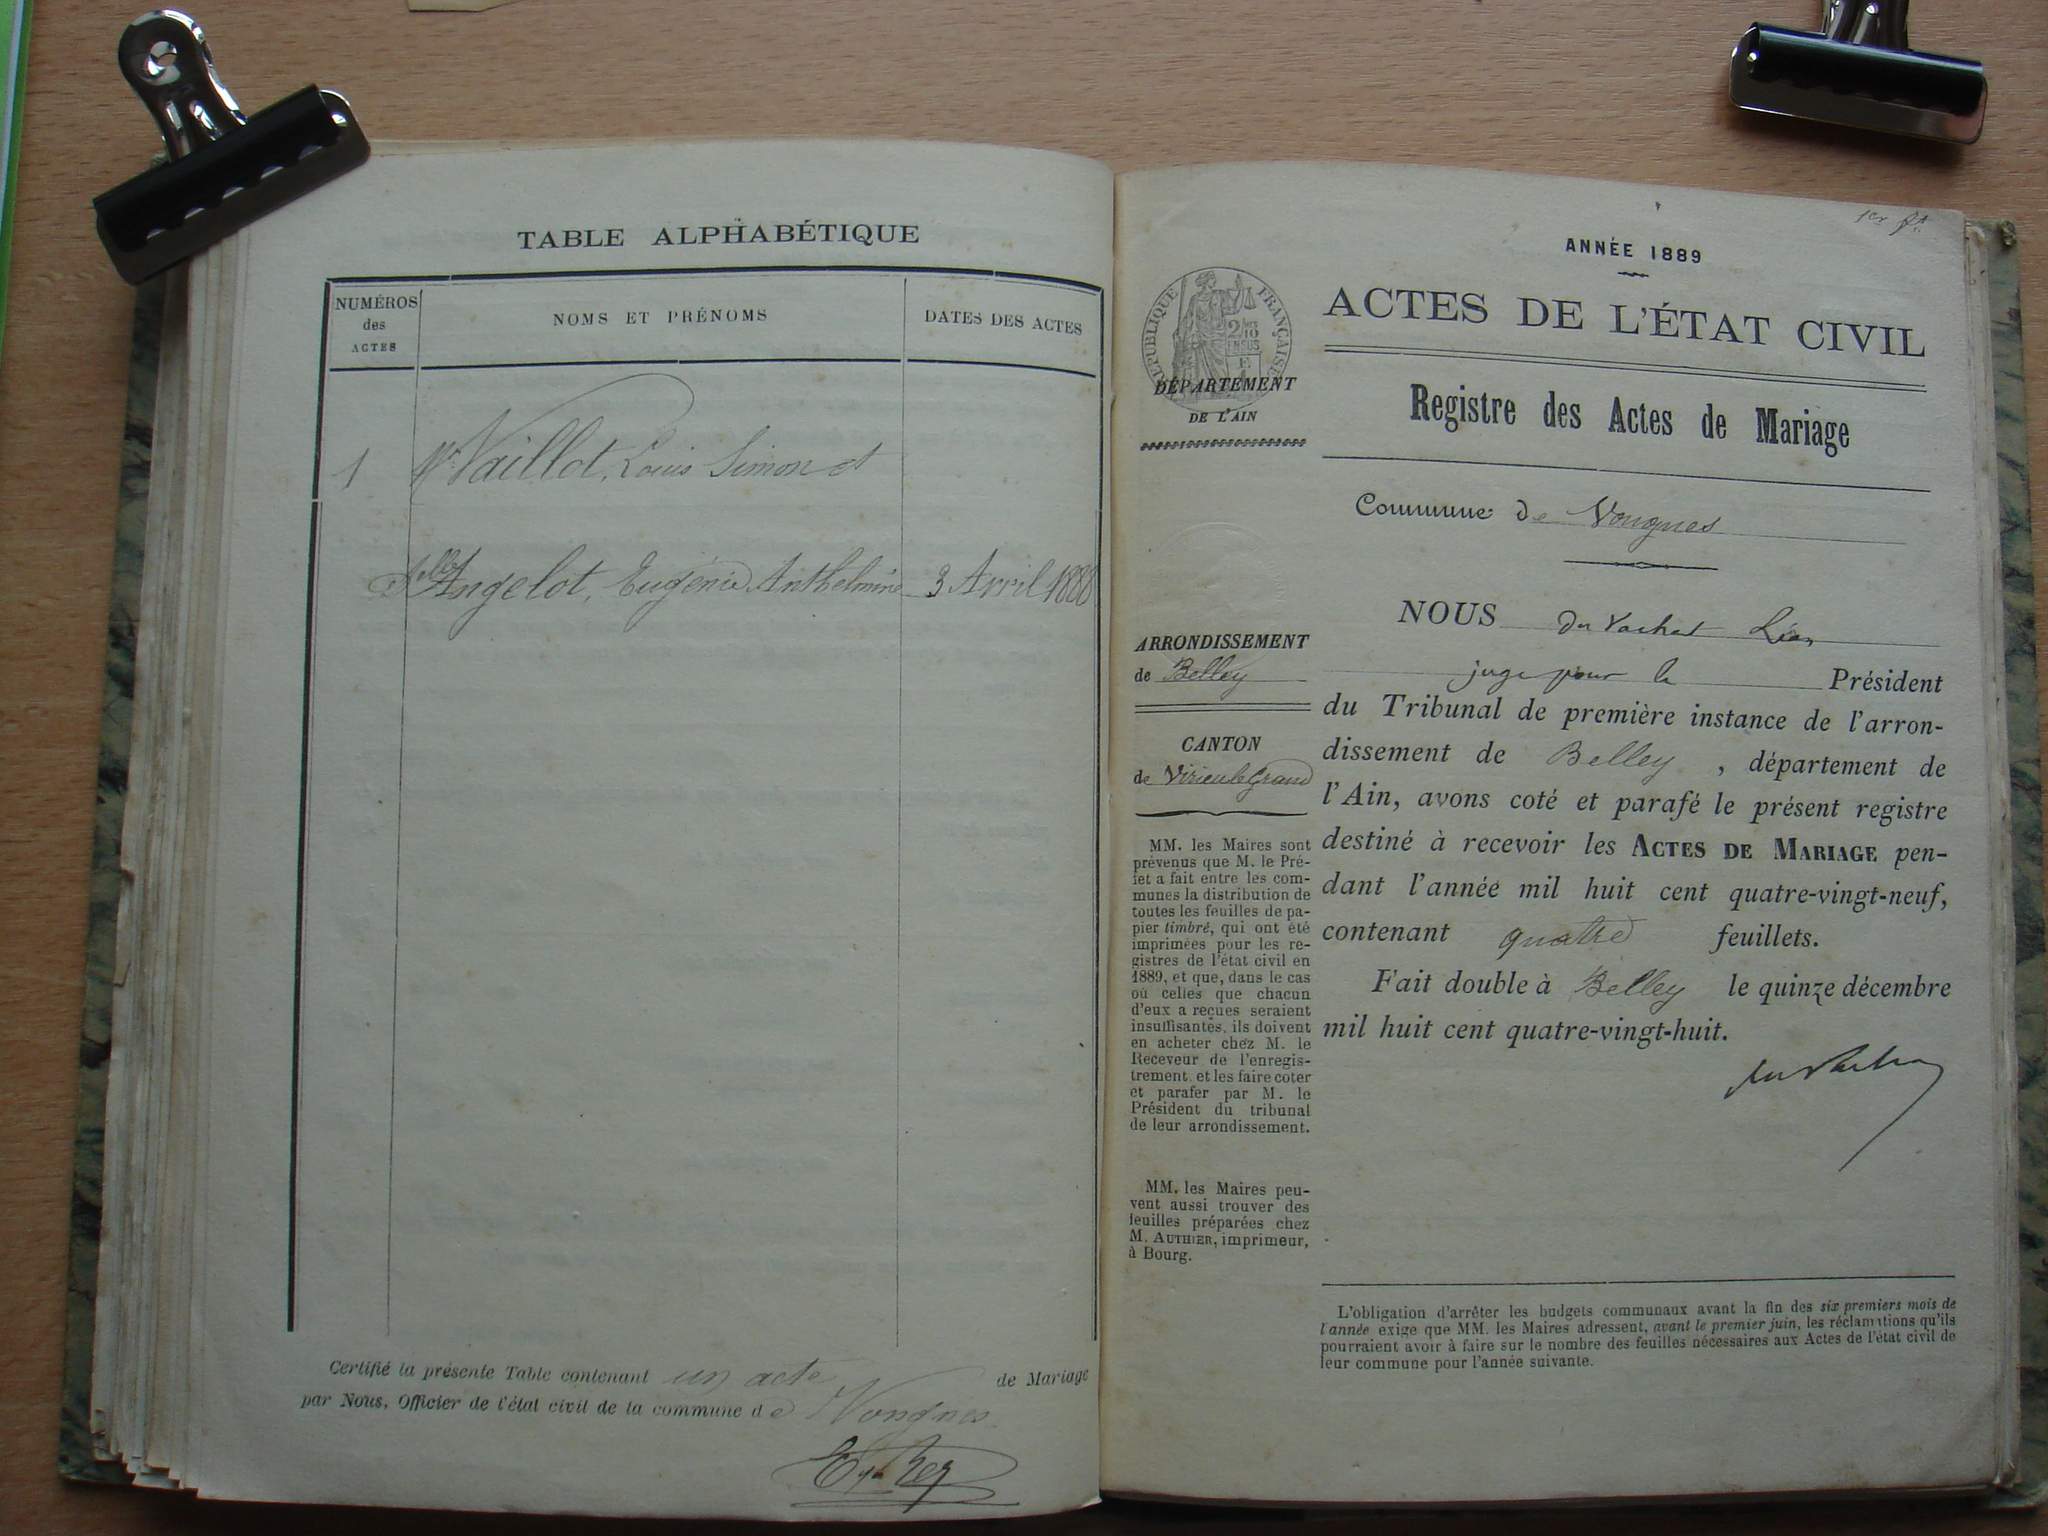 TABLE ALPHABÉTIQUE
NUMÉROS
des
ACTES
NOMS ET PRÉNOMS
DATES DES ACTES
1 Mr Vaillot, Louis Simon et
Dlle Angelot, Eugénie Anthelmine 3 Avril 1888
Certifié la présente Table contenant un acte de Mariage
par Nous, Officier de l'état civil de la commune de Vongnes
1er ft.
ANNÉE 1889
RÉPUBLIQUE FRANÇAISE
ACTES DE L'ÉTAT CIVIL
DÉPARTEMENT
DE L'AIN
Registre des Actes de Mariage
Commune de Vongnes
ARRONDISSEMENT
de Belley
CANTON
de Virieu le Grand
MM. les Maires sont
prévenus que M. le Pré-
fet a fait entre les com-
munes la distribution de
toutes les feuilles de pa-
pier timbré, qui ont été
imprimées pour les re-
gistres de l'état civil en
1889, et que, dans le cas
où celles que chacun
d'eux a reçues seraient
insuffisantes, ils doivent
en acheter chez M. le
Receveur de l'enregis-
trement et les faire coter
et parafer par M. le
Président du tribunal
de leur arrondissement.
MM. les Maires peu-
vent aussi trouver des
feuilles préparées chez
M. AUTHIER, imprimeur,
à Bourg.
NOUS du Vachat Léon
juge pour le Président
du Tribunal de première instance de l'arron-
dissement de Belley, département de
l'Ain, avons coté et parafé le présent registre
destiné à recevoir les ACTES DE MARIAGE pen-
dant l'année mil huit cent quatre-vingt-neuf,
contenant quatre feuillets.
Fait double à Belley le quinze décembre
mil huit cent quatre-vingt-huit.
du Vachat
L'obligation d'arrêter les budgets communaux avant la fin des six premiers mois de
l'année exige que MM. les Maires adressent, avant le premier juin, les réclamations qu'ils
pourraient avoir à faire sur le nombre des feuilles nécessaires aux Actes de l'état civil de
leur commune pour l'année suivante.